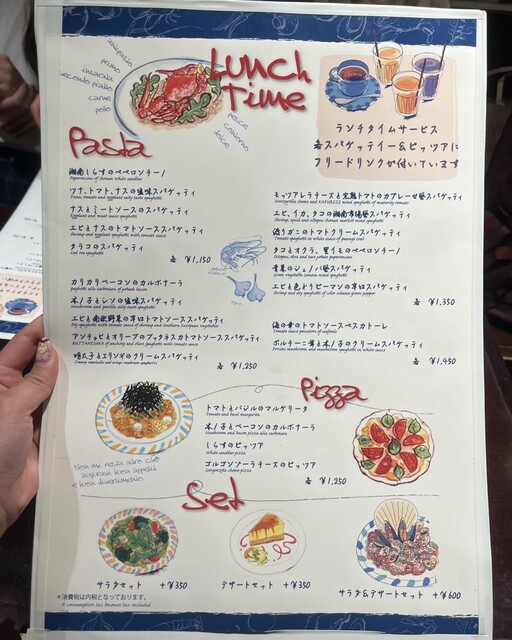 Lunch Time
antipasto
primo
insalata
secondo piatto
carne
pollo
pesce
contorno
dolce
ランチタイムサービス
各スパゲッティー&ピッツァに
フリードリンクが付いています
Pasta
湘南しらすのペペロンチーノ
Peperoncino of Shonan white sandbar
ツナ、トマト、ナスの塩味スパゲッティ
Tuna, tomato and eggplant salty taste spaghetti
ナスとミートソースのスパゲッティ
Eggplant and meat sauce spaghetti
エビとナスのトマトソーススパゲッティ
Shrimp and eggplant spaghetti with tomato sauce
タラコのスパゲッティ
Cod roe spaghetti
各 ¥1,150
カリカリベーコンのカルボナーラ
木ノ子とシソの塩味スパゲッティ
Mushroom and perilla salty taste spaghetti
エビと南欧野菜の辛口トマトソーススパゲッティ
アンチョビとオリーブのプッタネスカトマトソーススパゲッティ
明太子とエリンギのクリームスパゲッティ
各 ¥1,250
モッツァレラチーズと完熟トマトのカプレーゼ風スパゲッティ
エビ、イカ、タコの湘南市場風スパゲッティ
渡りガニのトマトクリームスパゲッティ
タコとオクラ、青リものペペロンチーノ
青菜のジェノバ風スパゲッティ
エビと色とりピーマンの辛口スパゲッティ
各 ¥1,350
海の幸のトマトソースペスカトーレ
Tomato sauce pescatore of seafood
ポルチーニ茸と木ノ子のクリームスパゲッティ
各 ¥1,450
Pizza
トマトとバジルのマルゲリータ
Tomato and basil margarita
木ノ子とベーコンのカルボナーラ
Mushroom and bacon pizza alla carbonara
しらすのピッツァ
White sandbar pizza
ゴルゴンゾーラチーズのピッツァ
Gorgonzola cheese pizza
各 ¥1,250
Set
サラダセット +¥350
デザートセット +¥350
サラダ&デザートセット +¥600
※消費税は内税となっております。
A consumption tax becomes tax included